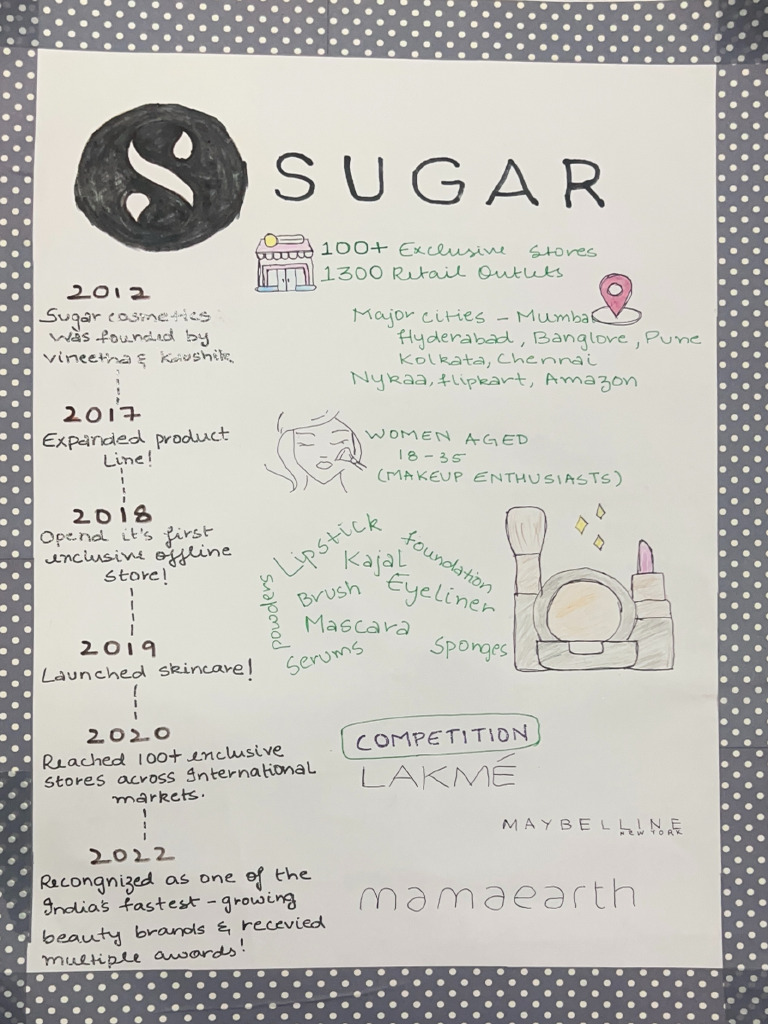 SUGAR
100+ Exclusive Stores
1300 Retail Outlets
Major cities - Mumbai
Hyderabad, Banglore, Pune
Kolkata, Chennai
Nykaa, flipkart, Amazon
WOMEN AGED
18-35
(MAKEUP ENTHUSIASTS)
Lipstick
foundation
Kajal
powders
Brush
Eyeliner
Mascara
Serums
Sponges
COMPETITION
LAKMÉ
MAYBELLINE
NEW YORK
mamaearth
2012
Sugar cosmetics
was founded by
vineetha & kaushik
2017
Expanded product
Line!
2018
Opend it's first
exclusive offline
store!
2019
Launched skincare!
2020
Reached 100+ exclusive
stores across International
markets.
2022
Recongnized as one of the
India's fastest-growing
beauty brands & recevied
multiple awards!